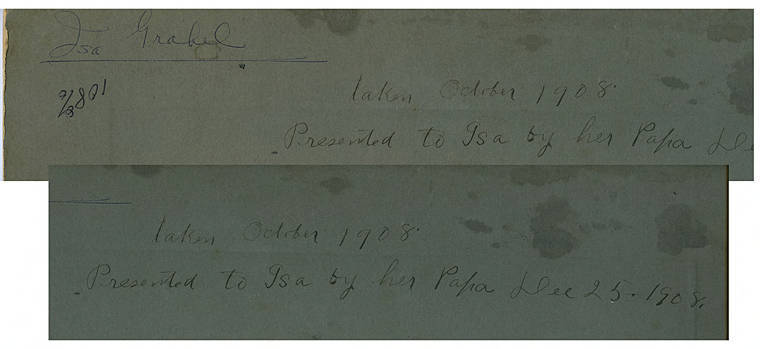 Isa Grabel
taken October 1908.
Presented to Isa by her Papa De
taken October 1908.
Presented to Isa by her Papa Dec 25. 1908.